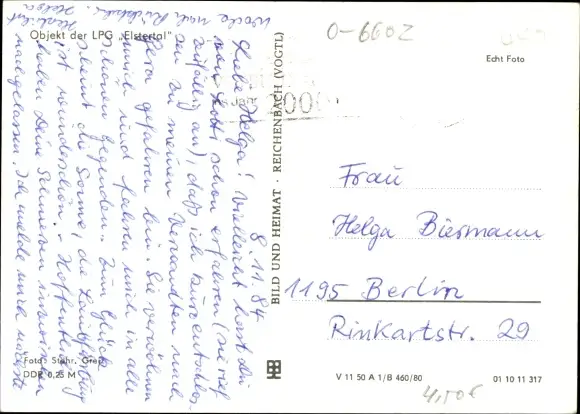 Objekt der LPG „Elstertal"
8. 11. 84
Liebe Helga! Vielleicht hast Du
von Lotti schon erfahren (sie rief
zufällig an), daß ich kurzentschlos-
sen zu meinen Verwandten nach
Gera gefahren bin. Sie verwöhnen
mich und fahren mich in alle
schönen Gegenden. Zum Glück
scheint die Sonne, die Laubfärbung
ist wunderschön. – Hoffentlich
haben Deine Schmerzen inzwischen
nachgelassen. Ich melde mich nächste
Woche nach Rückkehr.
Herzlichst
Foto: Stehr, Greiz
DDR 0,25 M
BILD UND HEIMAT · REICHENBACH (VOGTL)
0-6602
Echt Foto
Frau
Helga Biermann
1195 Berlin
Rinkartstr. 29
V 11 50 A 1/B 460/80
01 10 11 317
4,50€